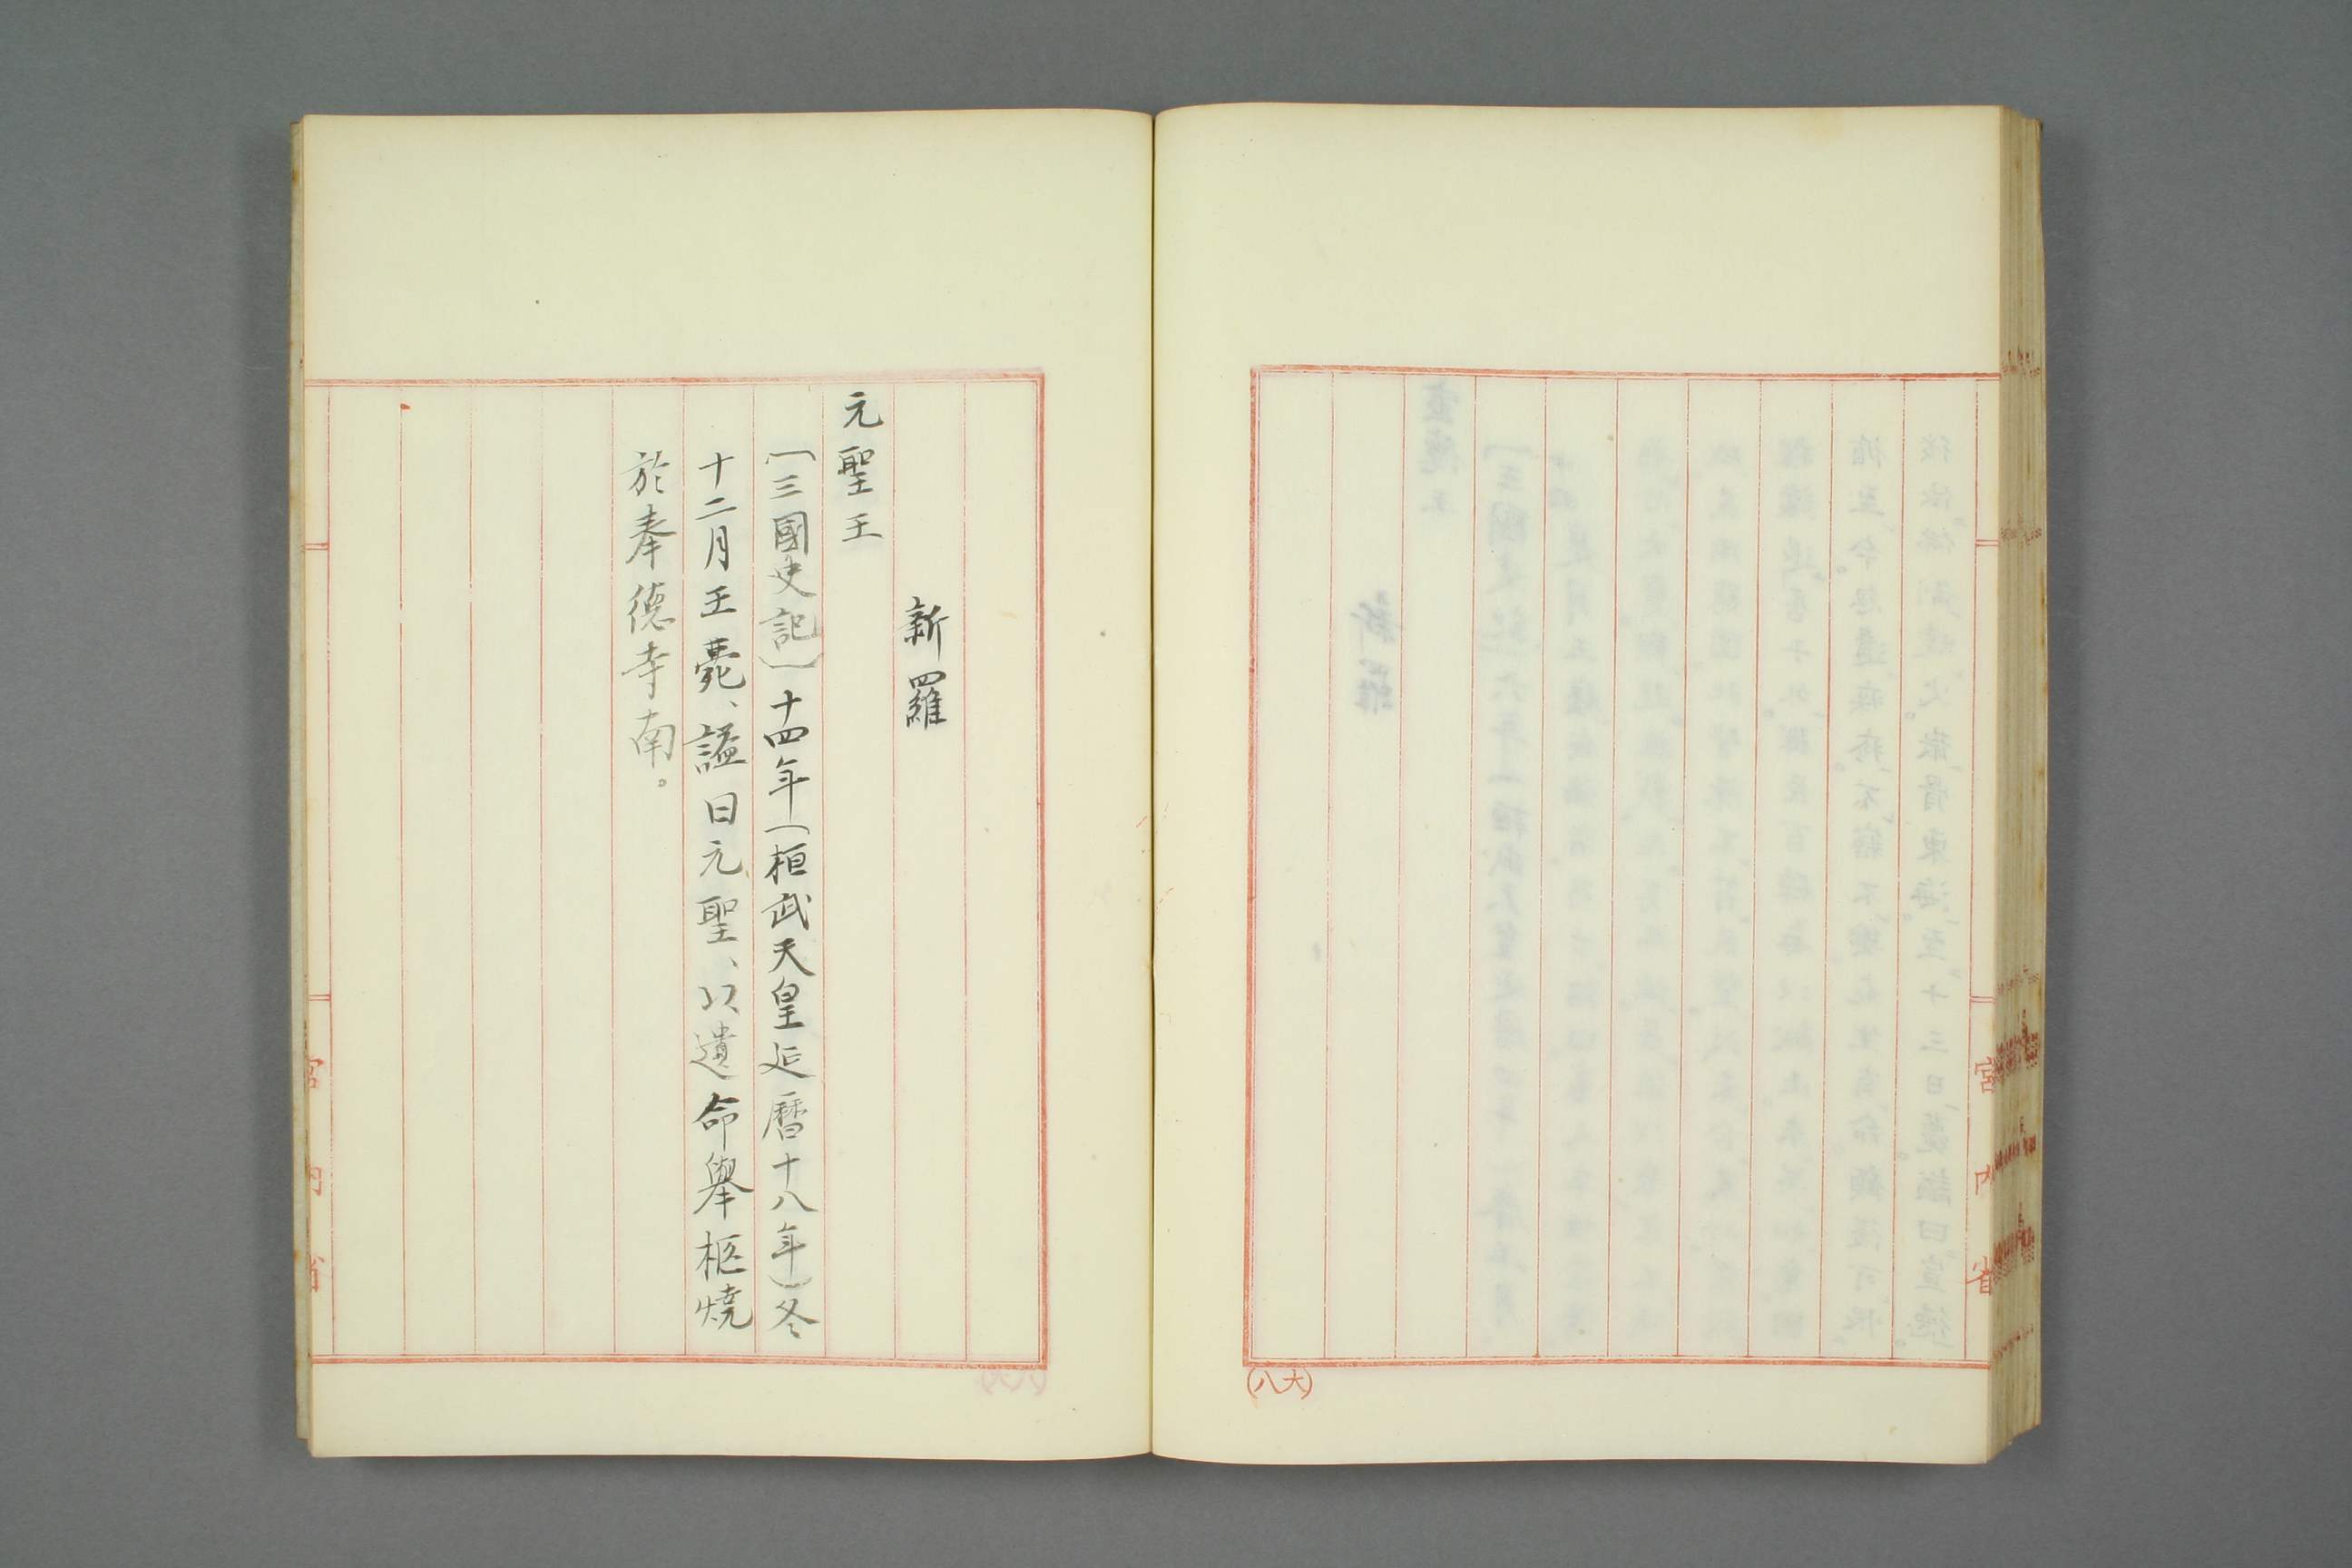 宮内省
(八大)
新羅
元聖王
〔三國史記〕十四年(桓武天皇延曆十八年)冬
十二月王薨、謚曰元聖、以遺命舉柩燒
於奉德寺南。